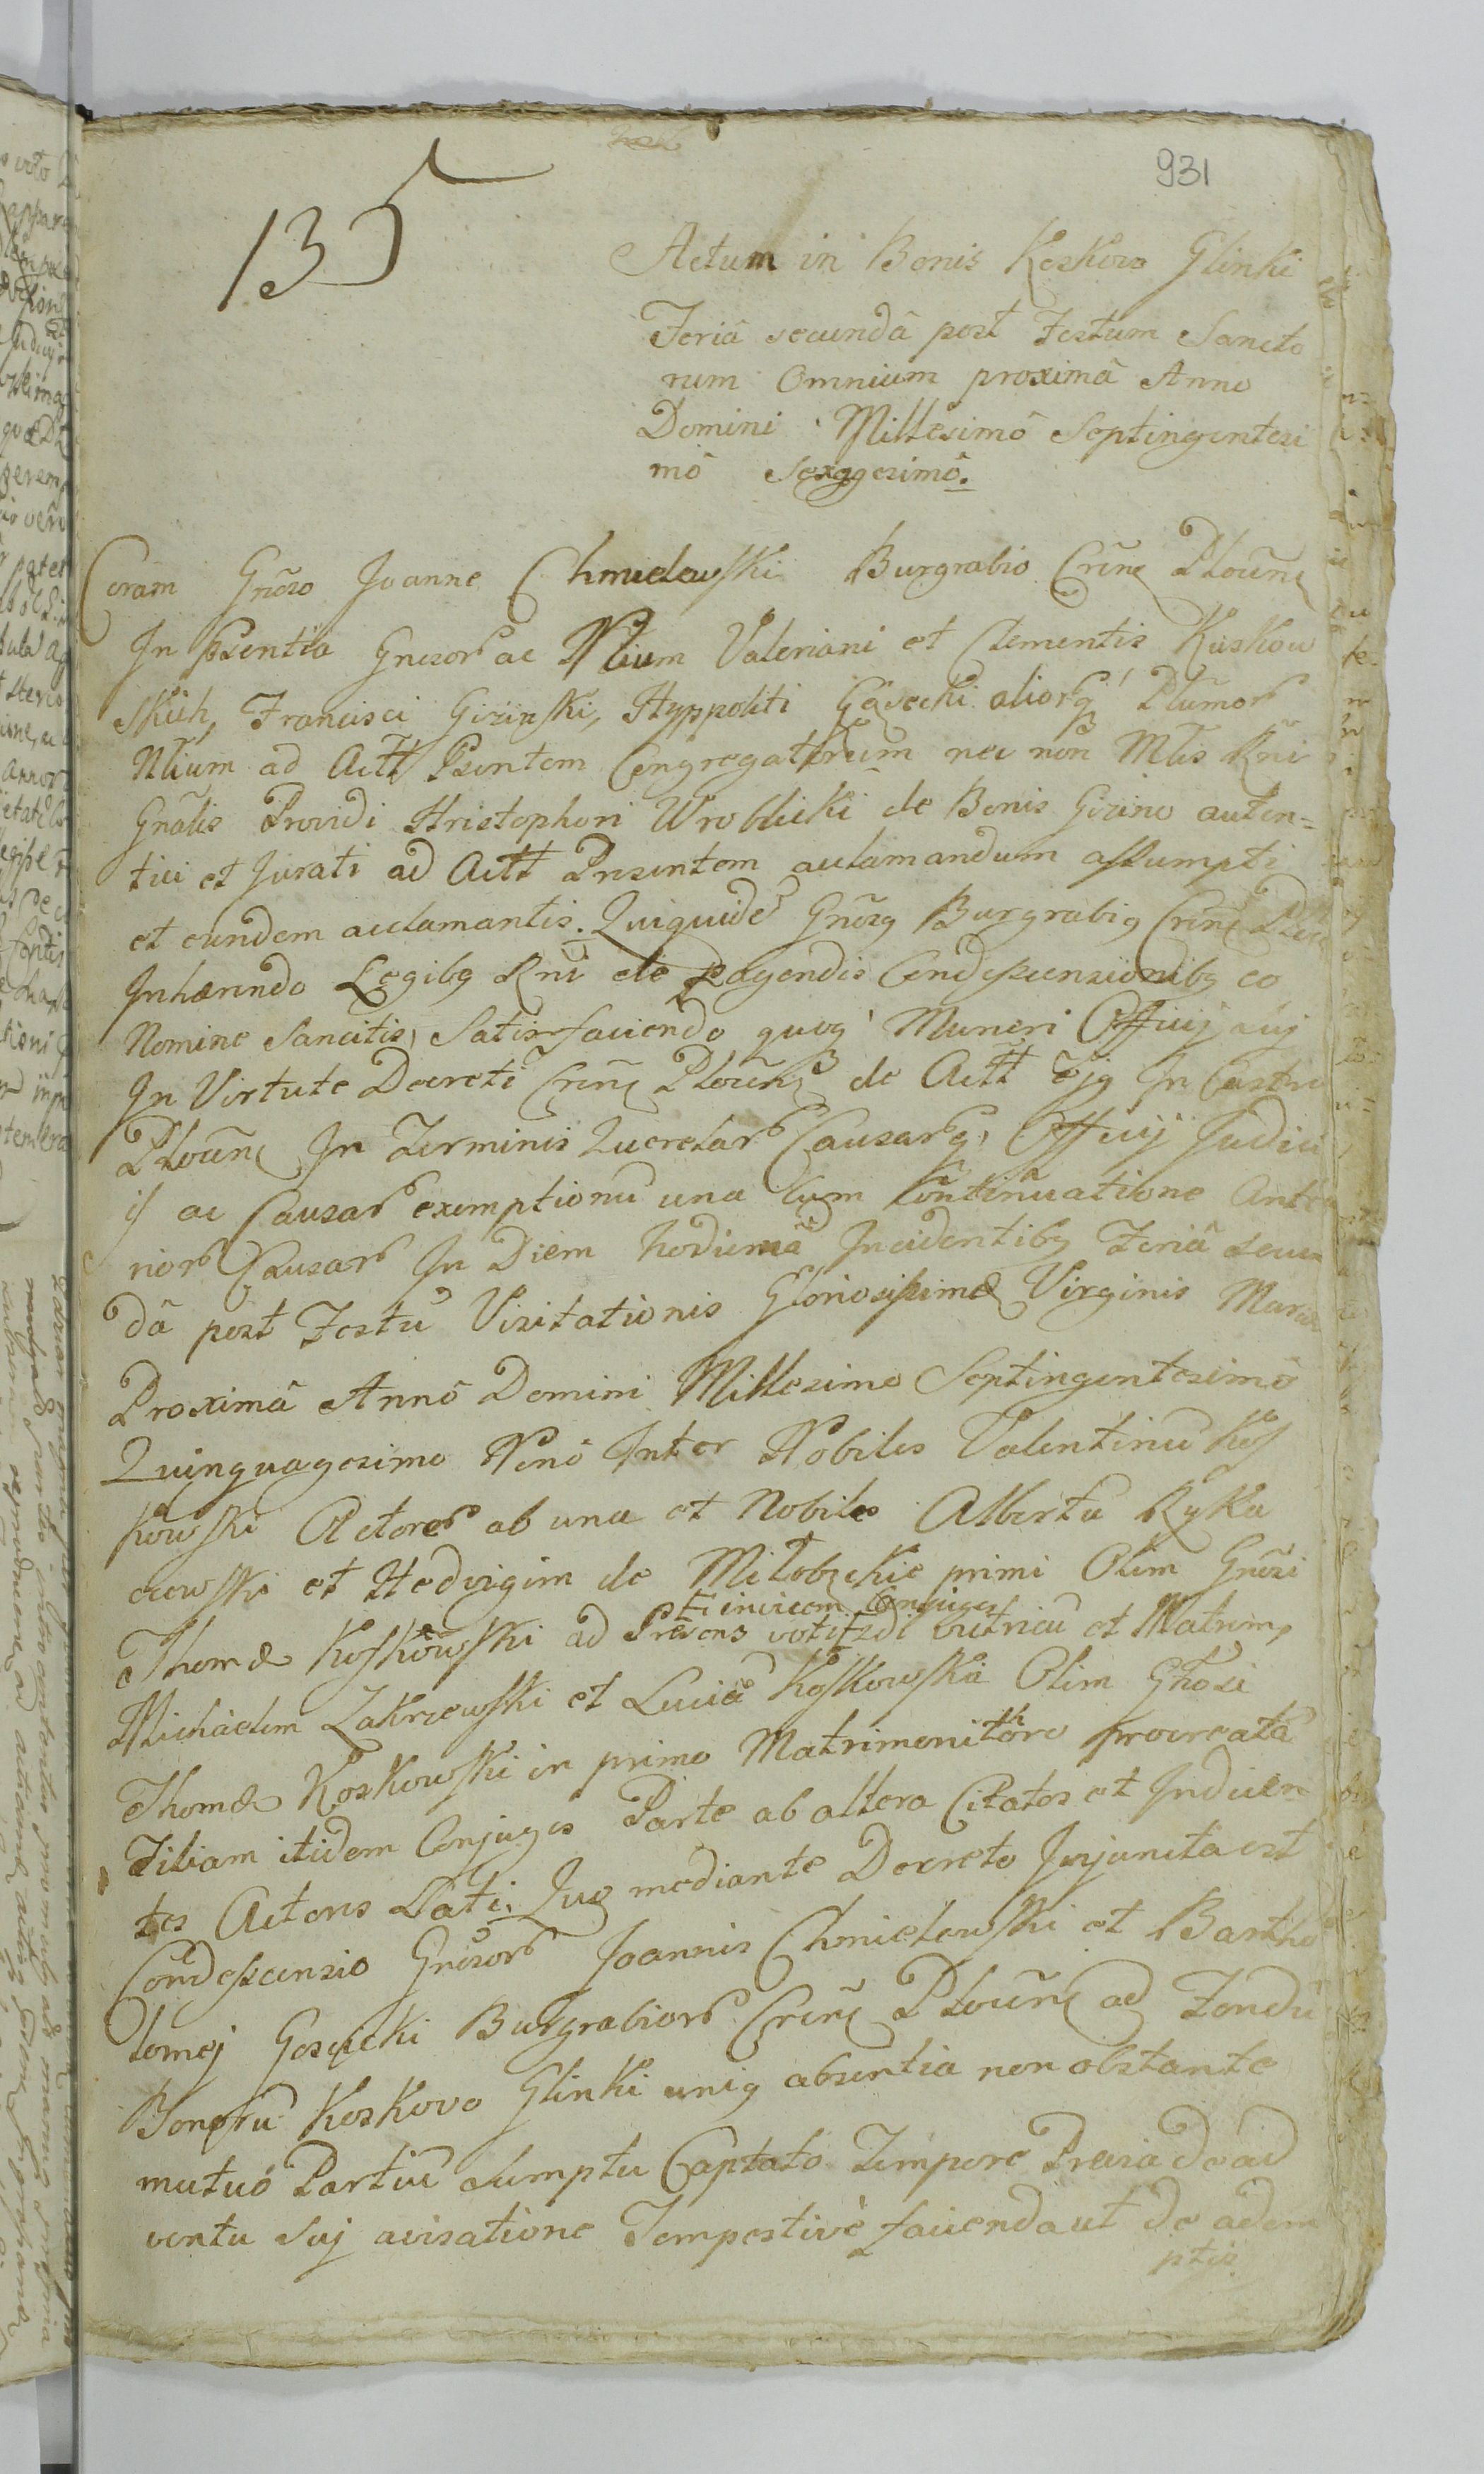 931
135
Actum in Bonis Koskowo Glinki
Feriâ secundâ post Festum Sancto
rum Omnium proximâ Anno
Domini Millesimô Septingentesi
mô Sexagesimô.
Coram Gnõso Joanne Chmielewski Burgrabio Crēñ Ploēñ
In Psentia Gnesor ac Nlium Valeriani et Clementis Kuskow
skich, Francisci Gizinski, Hyppoliti Gąsecki aliorq Plūmor
Nlium ad Actt Psentem Congregatorum nec non Mtis Rni
Gnãlis Providi Hristophori Wroblicki de Bonis Gizino auten=
tici et Jurati ad Actt Prsentem aclamandum assumpti
et eundem acclamantis. Quiquidē Gnõsq Burgrabiq Crēñ
Inhærendo Legibq Rni de pagendis Condescensionibq eo
Nomine Sancitis, Satisfaciendo quoq Muneri Officij sui
In Virtute Decreti Crēñ Ploēñ de Actt Ejq In Castro
Ploēñ In Terminis Querelar Causarq, Officij Judicii
ij ac Causar exemptionū una Cum Cōntinuatione Ante
rior Causar In Diem hodiernã Incidentibq Feriâ secun
dâ post Festū Visitationis Gloriosissimæ Virginis Mariæ
Proximâ Annô Domini Millesimo Septingentesimô
Quinquagesimo Nonô Inter Nobiles Valentinū Kos
kowski Actorem ab una et Nobiles Albertū Ryka
czewski et Hedvigim de Miłobzckie primi Olim Gnõsi
Ti invicem Conjuges
Thomæ Koskowski ad Præsens voti 2di vitricū et Matrem,
Michaelem Zakrzewski et Luciã Koskowska Olim Gnõsi
Thomæ Koskowski in primo Matrimonii thoro procreatã
Filiam itidem Conjuges Parte ab altera Citatos et Inducen
tes Actoris Lati. Quo mediante Decreto Injuncta est
Condescensio Gnõsor Joannis Chmielewski et Bartho
lomej Gosęcki Burgrabior Crēñ Ploēñ ad Fondū
Bonorū Koskovo Glinki uniq absentia non obstante
mutuô Partiū sumptu Captato Tempore Prævia de ad
ventu Suj avisatione Tempestivè facienda ut de adem
ptis